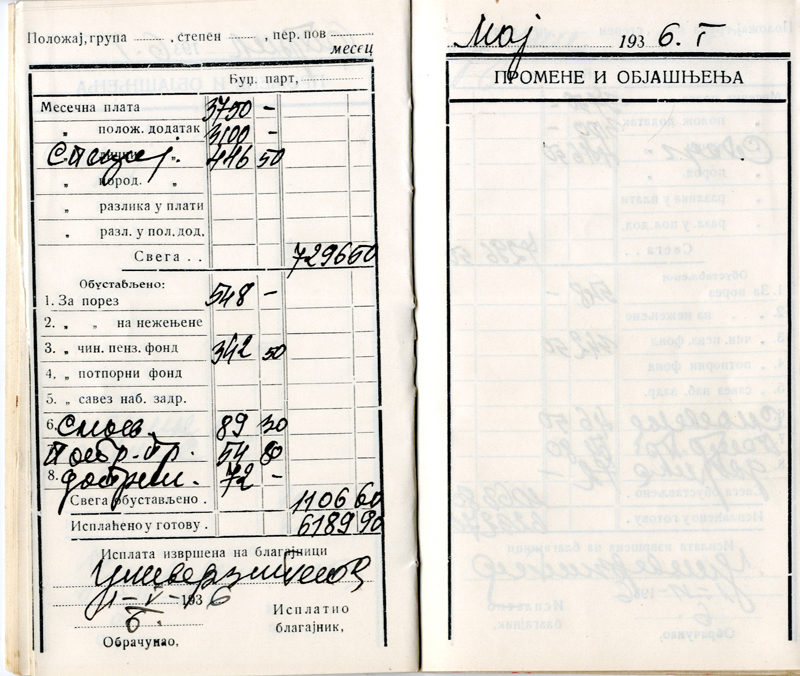 Положај, група ........ , степен ........ , пер. пов ........
месец
Буџ. парт,
Месечна плата 3750 -
„ полож. додатак 3100 -
446 50
„ пород. „
„ разлика у плати
„ разл. у пол. дод.
Свега . . 7296 50
Обустављено:
1. За порез 548 -
2. „ „ на нежењене
3. „ чин. пенз. фонд 342 50
4. „ потпорни фонд
5. „ савез наб. задр.
6. 89 30
54 80
8. 72 -
Свега обустављено . 1106 60
Исплаћено у готову . 6189 90
Исплата извршена на благајници
1-V-1936
Исплатио
благајник,
Обрачунао,
Мај 1936. г
ПРОМЕНЕ И ОБЈАШЊЕЊА